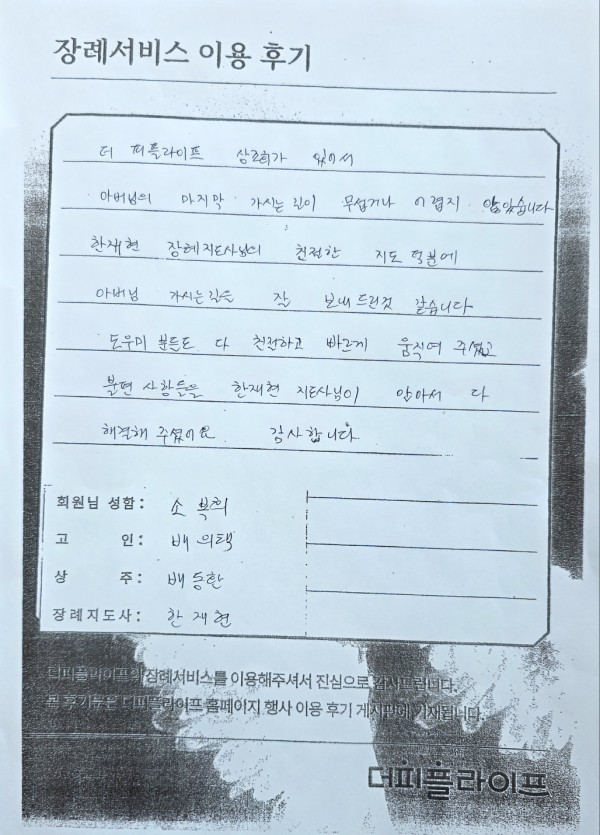 장례서비스 이용 후기
더 피플라이프 상조회가 있어서
아버님의 마지막 가시는길이 무섭거나 어렵지 않았습니다
한재현 장례지도사님의 친절한 지도 덕분에
아버님 가시는길을 잘 보내드린것 같습니다
도우미 분들도 다 친절하고 빠르게 움직여 주셨고
불편 사항들을 한재현 지도사님이 앞아서 다
해결해 주셨어요 감사합니다
회원님 성함: 소복희
고 인: 배의택
상 주: 배동환
장례지도사: 한재현
더피플라이프의 장례서비스를 이용해주셔서 진심으로 감사드립니다.
본 후기문은 더피플라이프 홈페이지 행사 이용 후기 게시판에 기재됩니다.
더피플라이프